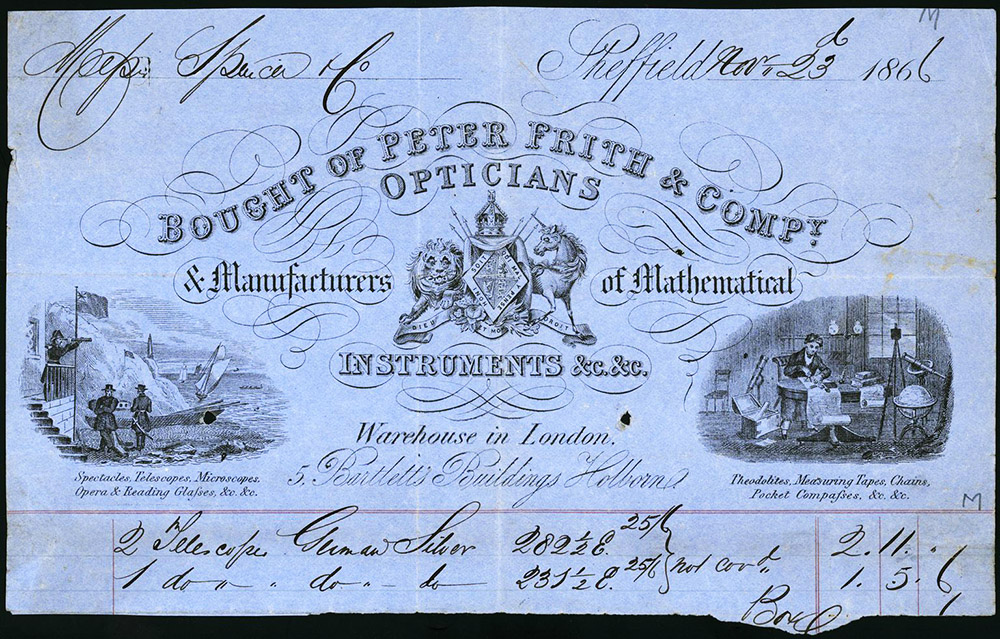 M
Messrs Spencer & Co
Sheffield Novr 23d 1866
BOUGHT OF PETER FRITH & COMPY.
OPTICIANS
& Manufacturers of Mathematical
DIEU ET MON DROIT
INSTRUMENTS &c. &c.
Warehouse in London.
5, Bartlett's Buildings Holborn
Spectacles, Telescopes, Microscopes,
Opera & Reading Glasses, &c. &c.
Theodolites, Measuring Tapes, Chains,
Pocket Compasses, &c. &c.
M
2 Telescopes German Silver 282½ E. 25/6 not covd 2. 11. "
1 do " " do " do 231½ E. 25/6 1. 5. 6